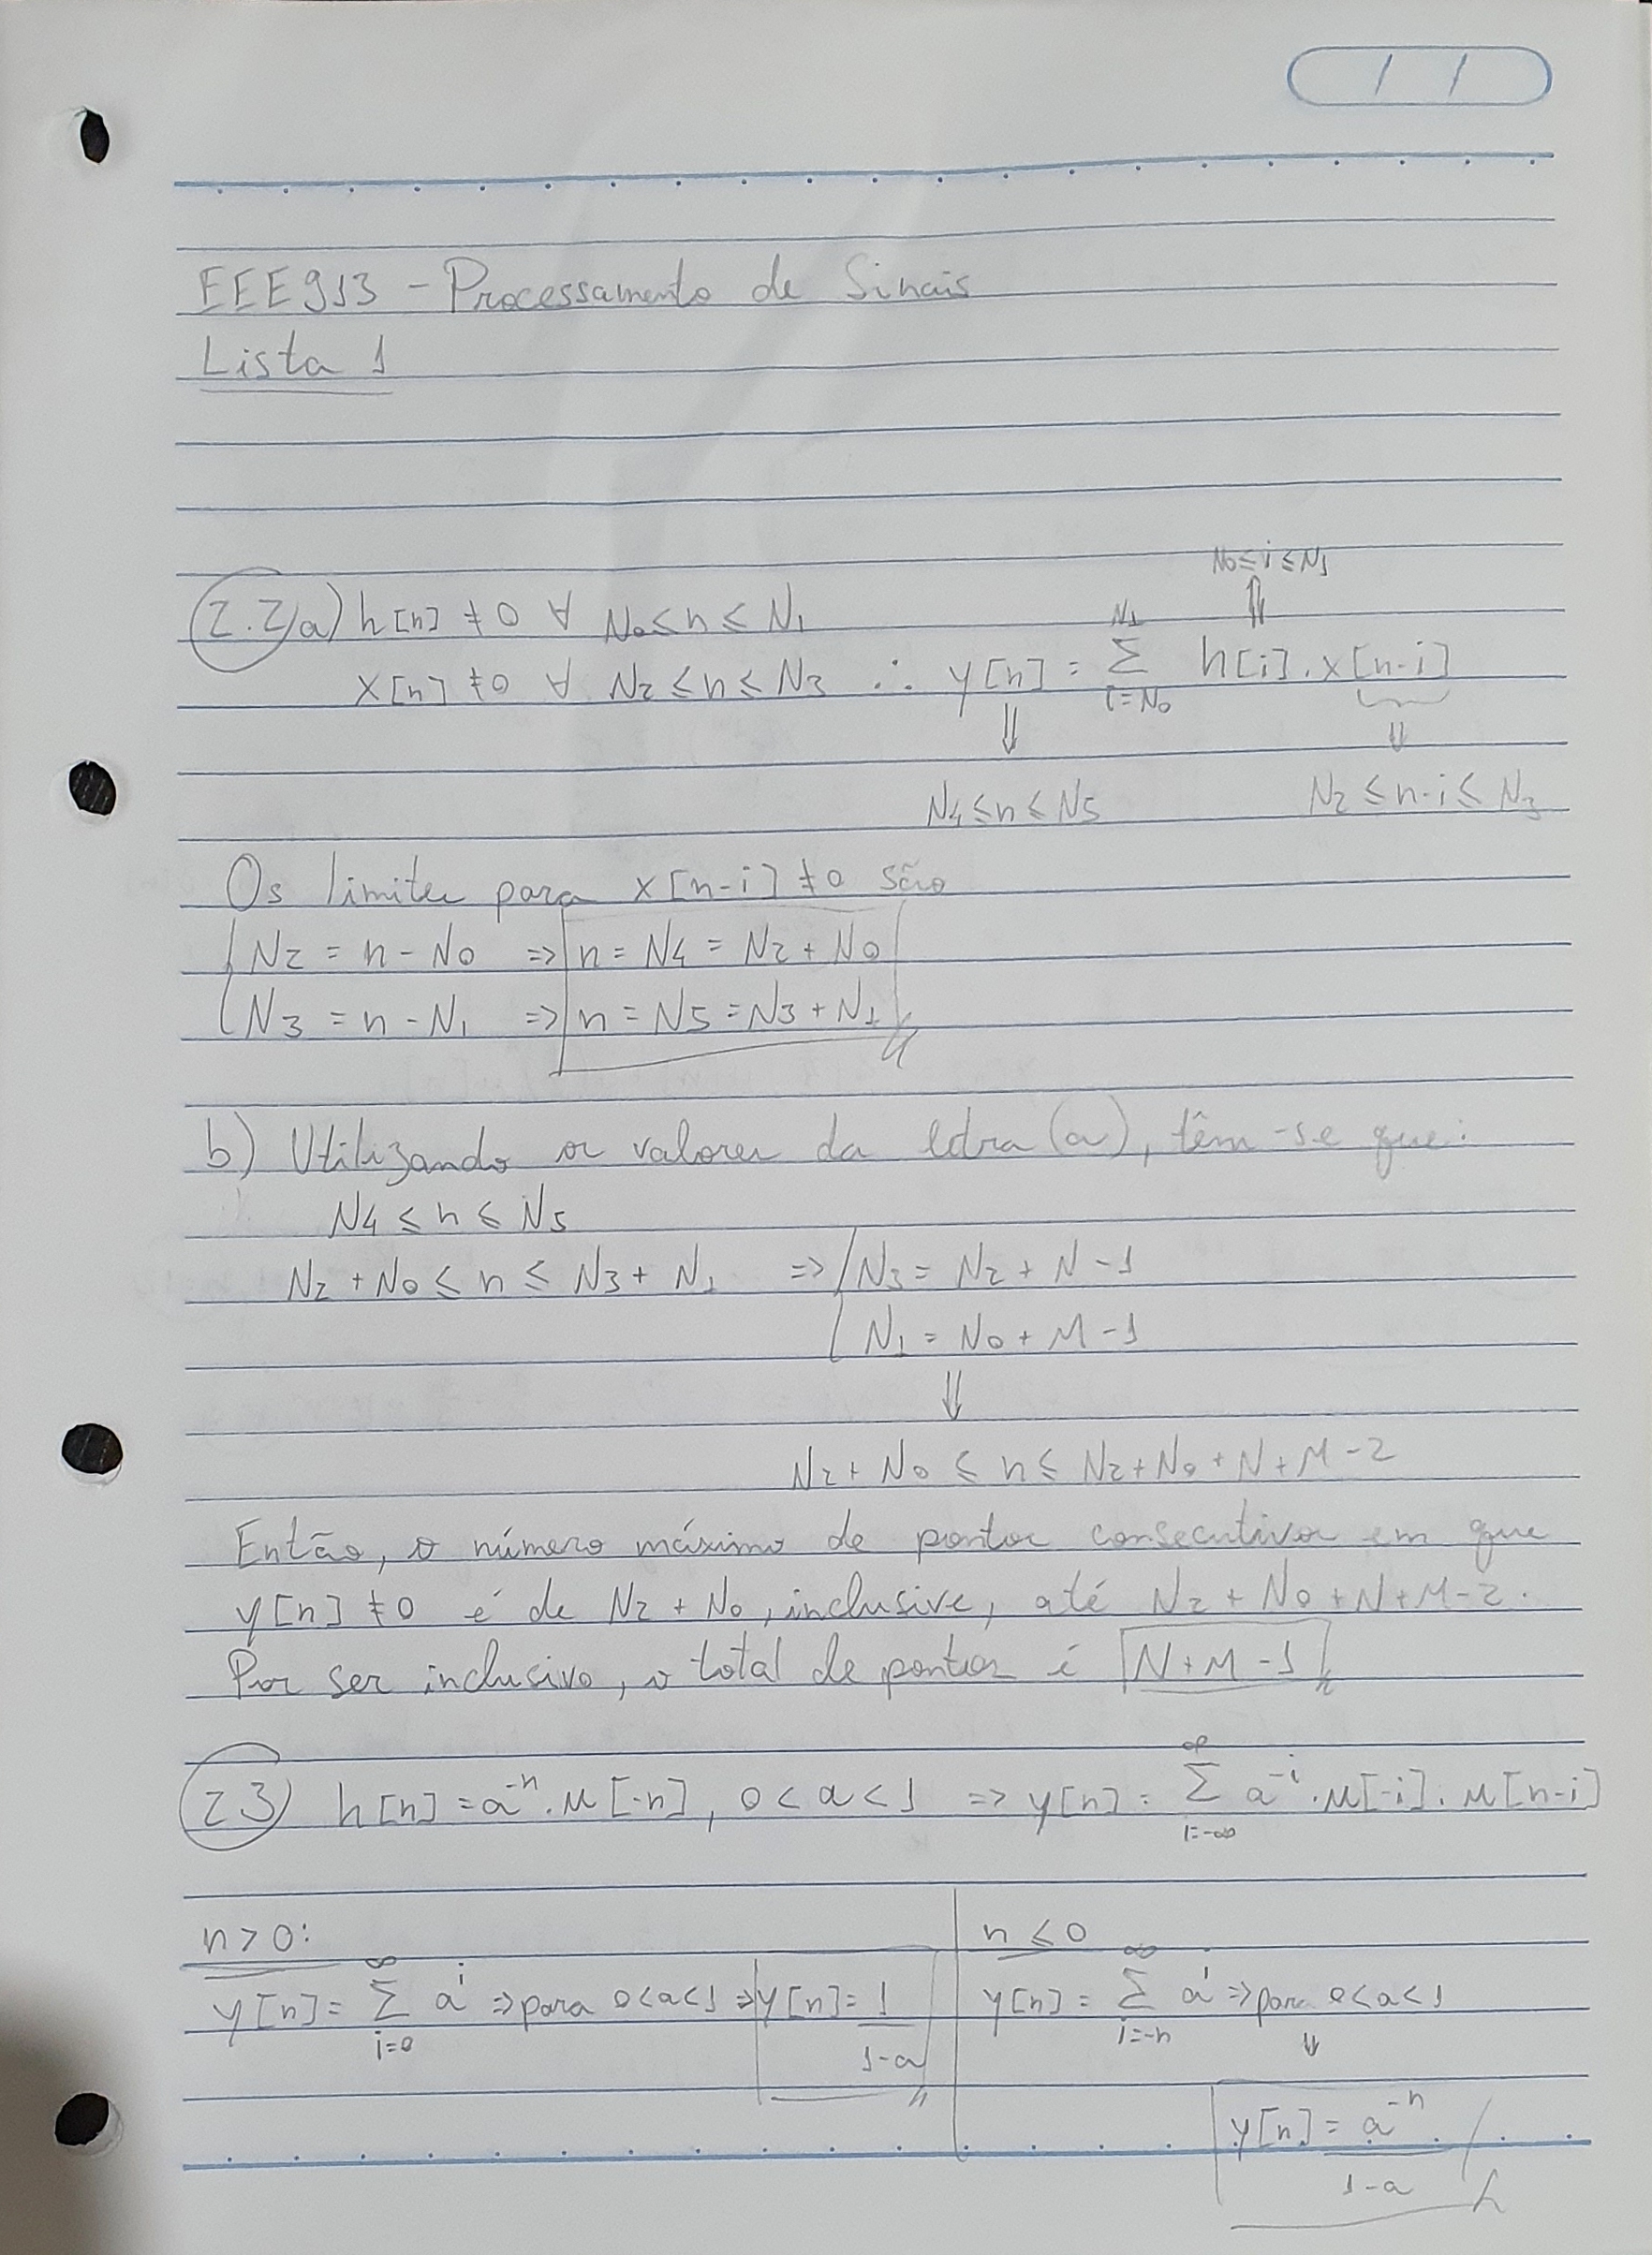 EEE913 - Processamento de Sinais
Lista 1
N0≤i≤N1
2.2) a) h[n] ≠ 0 ∀ N0≤n≤N1
x[n] ≠ 0 ∀ N2≤n≤N3 ∴ y[n] = Σ_{i=N0}^{N1} h[i].x[n-i]
⇓ ⇓
N4≤n≤N5 N2≤n-i≤N3
Os limites para x[n-i] ≠ 0 são
{ N2 = n - N0 => n = N4 = N2 + N0
{ N3 = n - N1 => n = N5 = N3 + N1
b) Utilizando os valores da letra (a), têm-se que:
N4 ≤ n ≤ N5
N2 + N0 ≤ n ≤ N3 + N1 => { N3 = N2 + N - 1
{ N1 = N0 + M - 1
⇓
N2 + N0 ≤ n ≤ N2 + N0 + N + M - 2
Então, o número máximo de pontos consecutivos em que
y[n] ≠ 0 é de N2 + N0, inclusive, até N2 + N0 + N + M - 2.
Por ser inclusivo, o total de pontos é N + M - 1
2.3) h[n] = a^{-n}.u[-n], 0 < a < 1 => y[n] = Σ_{i=-∞}^{∞} a^{-i}.u[-i].u[n-i]
n > 0:
y[n] = Σ_{i=0}^{∞} a^i => para 0<a<1 => y[n] = 1/(1-a)
n ≤ 0
y[n] = Σ_{i=-n}^{∞} a^i => para 0<a<1
⇓
y[n] = a^{-n}/(1-a)